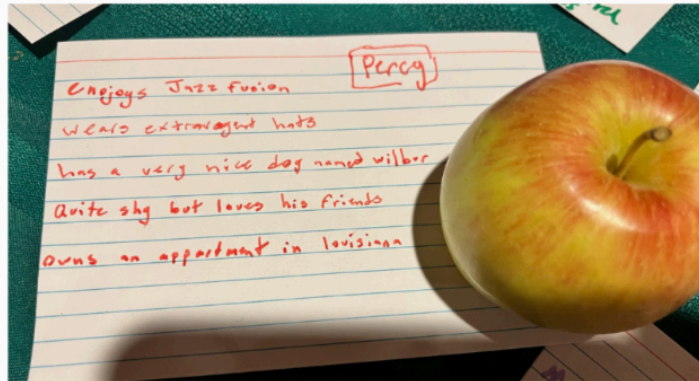 Percy
enjoys Jazz Fusion
wears extravagent hats
has a very nice dog named wilbur
Quite shy but loves his friends
owns an appartment in louisiana